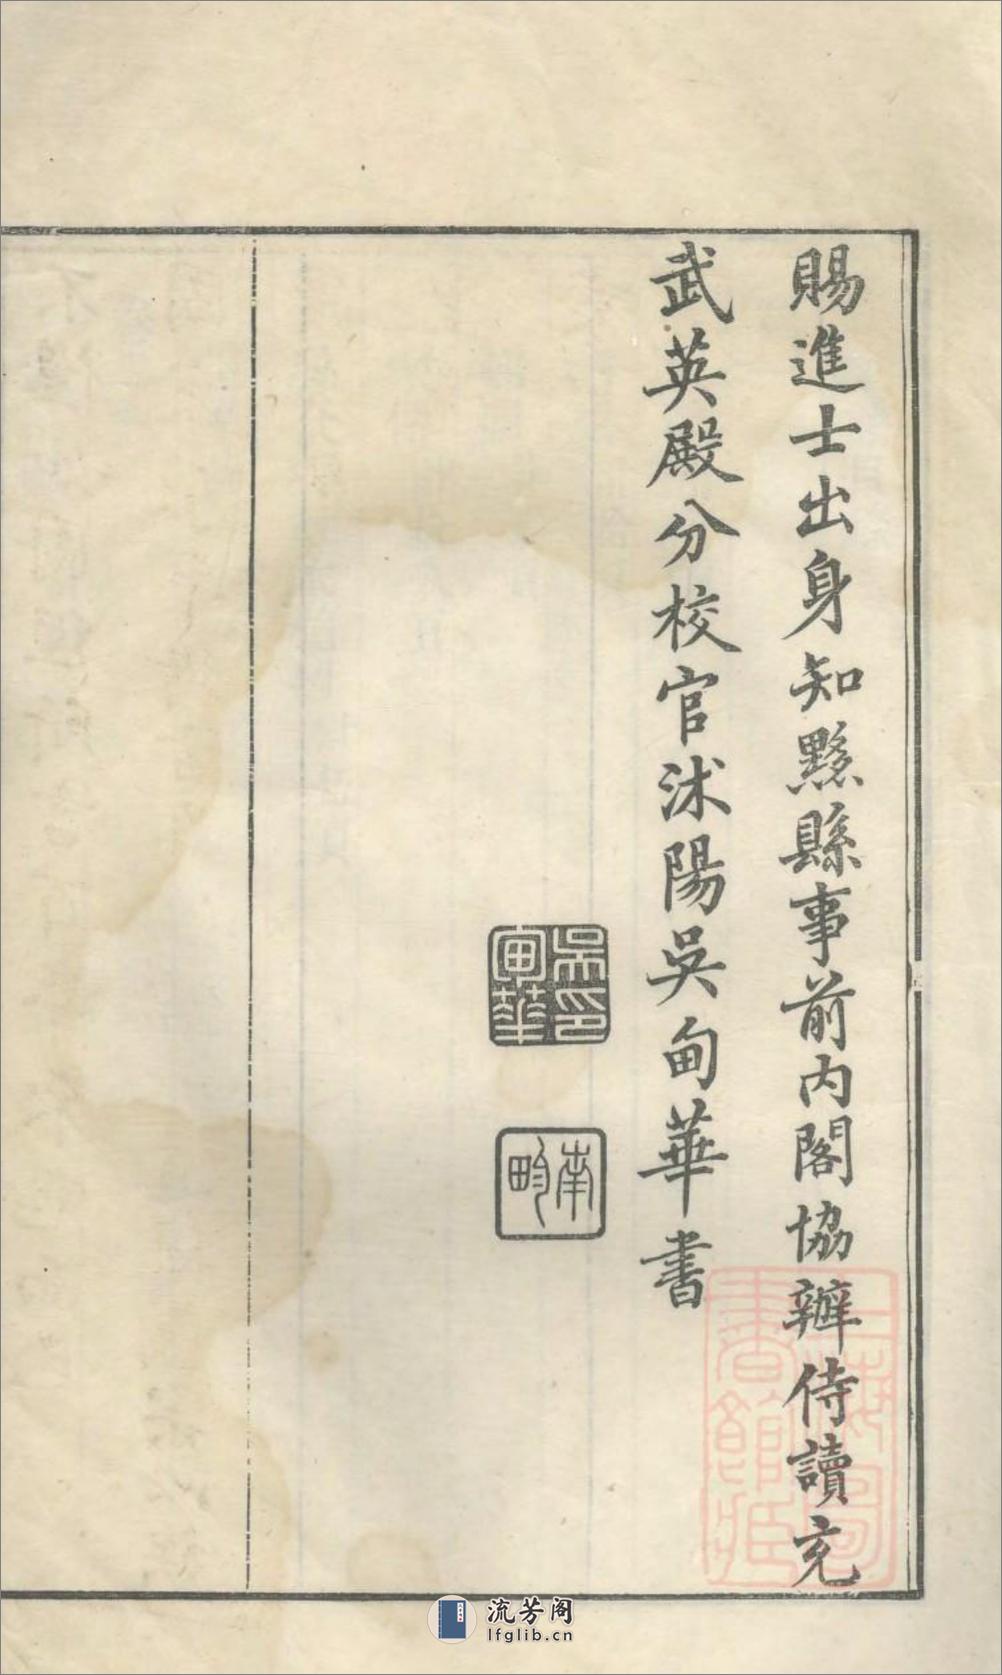 賜進士出身知黟縣事前内閣協辦侍讀充
武英殿分校官沭陽吳甸華書
吳印甸華
南畇
上海圖書館藏
流芳阁
lfglib.cn